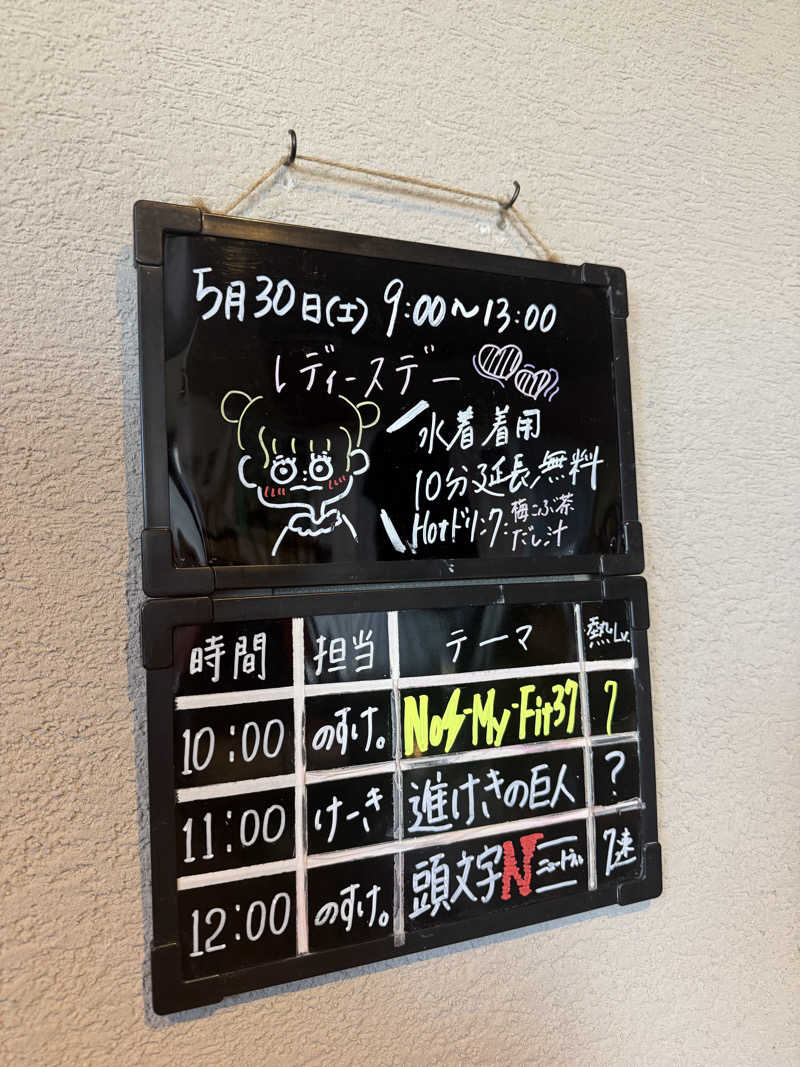 5月30日(土) 9:00〜13:00
レディースデー
水着着用
10分延長無料
Hotドリンク:梅こぶ茶
だし汁
時間 担当 テーマ 熱Lv.
10:00 のすけ。 Nos-My-Fit37 7
11:00 けーき 進けきの巨人 ?
12:00 のすけ。 頭文字N ニュートラル 7速